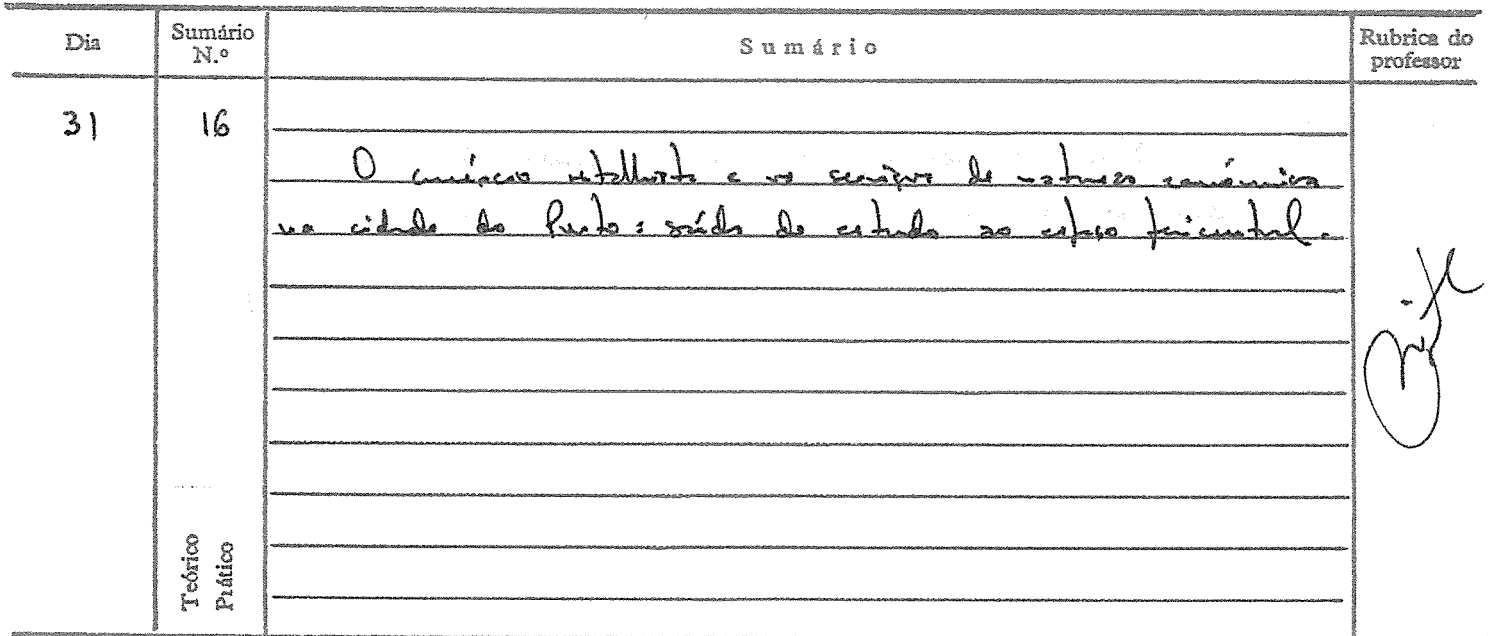 Dia
Sumário N.º
Sumário
Rubrica do professor
31
16
O comércio retalhista e os serviços de natureza económica
na cidade do Porto: saída de estudo ao espaço pericentral.
Teórico
Prático